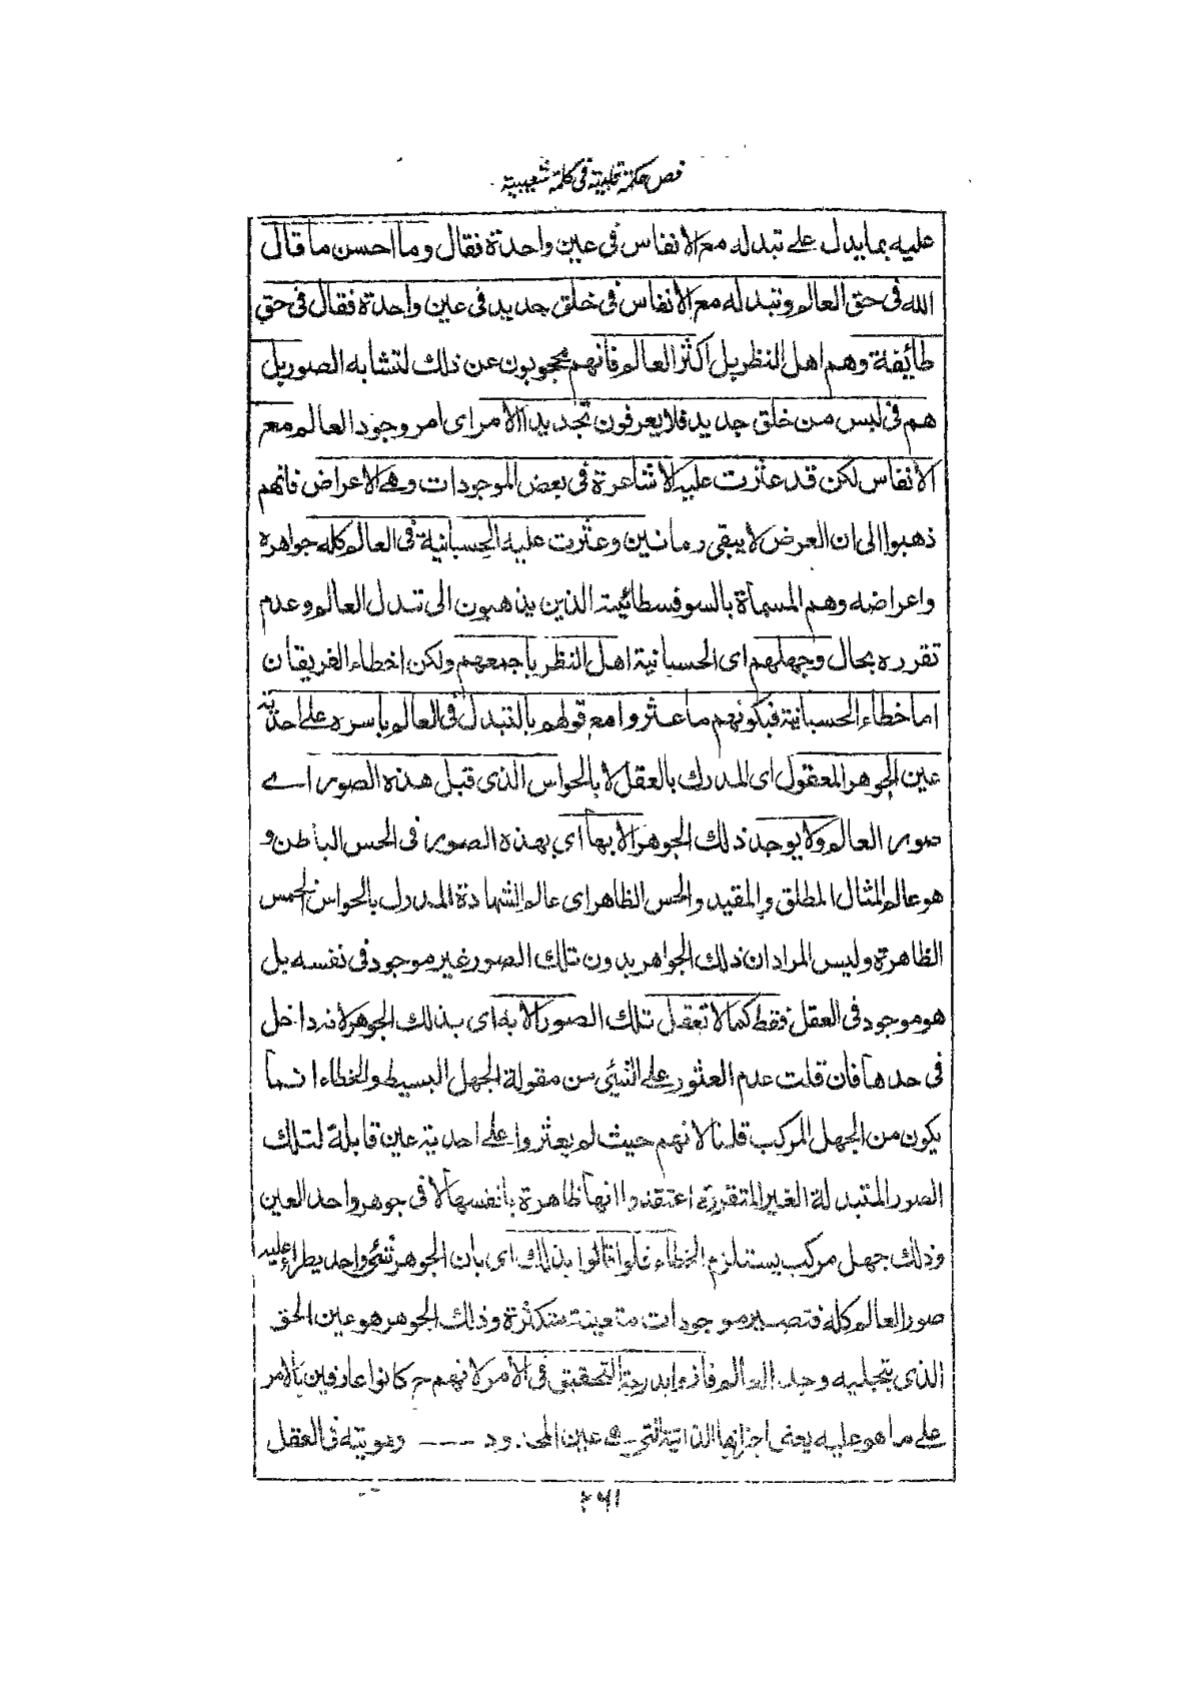 فص حكمة قلبية في كلمة شعيبية
عليه بما يدل على تبدله مع الانفاس فى عين واحدة فقال وما احسن ما قال
الله فى حق العالم وتبدله مع الانفاس فى خلق جديد فى عين واحدة فقال فى حق
طائفة وهم اهل النظر بل اكثر العالم فانهم محجوبون عن ذلك لتشابه الصور بل
هم فى لبس من خلق جديد فلا يعرفون تجديد الامر اى امر وجود العالم مع
الانفاس لكن قد عثرت عليه الاشاعرة فى بعض الموجودات وهى الاعراض فانهم
ذهبوا الى ان العرض لا يبقى زمانين وعثرت عليه الحسبانية فى العالم كله جواهره
واعراضه وهم المسماة بالسوفسطائية الذين يذهبون الى تبدل العالم وعدم
تقرره بحال وجهلهم اى الحسبانية اهل النظر باجمعهم ولكن اخطاء الفريقان
اما خطاء الحسبانية فبكونهم ما عثروا مع قولهم بالتبدل فى العالم باسره على احدية
عين الجوهر المعقول اى المدرك بالعقل لا بالحواس الذى قبل هذه الصور اے
صور العالم ولا يوجد ذلك الجوهر الا بها اى بهذه الصور فى الحس الباطن و
هو عالم المثال المطلق والمقيد والحس الظاهر اى عالم الشهادة المدرك بالحواس الخمس
الظاهرة وليس المراد ان ذلك الجواهر بدون تلك الصور غير موجود فى نفسه بل
هو موجود فى العقل فقط كما لا تعقل تلك الصور الا به اى بذلك الجوهر لانه داخل
فى حدها فان قلت عدم العثور على الشئ من مقولة الجهل البسيط والخطاء انما
يكون من الجهل المركب قلنا لانهم حيث لم يعثروا على احدية عين قابلة لتلك
الصور المتبدلة الغير المتقررة اعتقدوا انها ظاهرة بانفسها لا فى جوهر واحد العين
وذلك جهل مركب يستلزم الخطاء فلو قالوا بذلك اى بان الجوهر شئ واحد يطراء عليه
صور العالم كله فتصير موجودات متعينة متكثرة وذلك الجوهر هو عين الحق
الذى بتجليه وجد العالم فازوا بدرجة التحقيق فى الامر لانهم ح كانوا عارفين بالامر
على ما هو عليه يعنى اجزائها الذاتية التى هى عين المحدود ---- وهويته فى العقل
۲۶۱